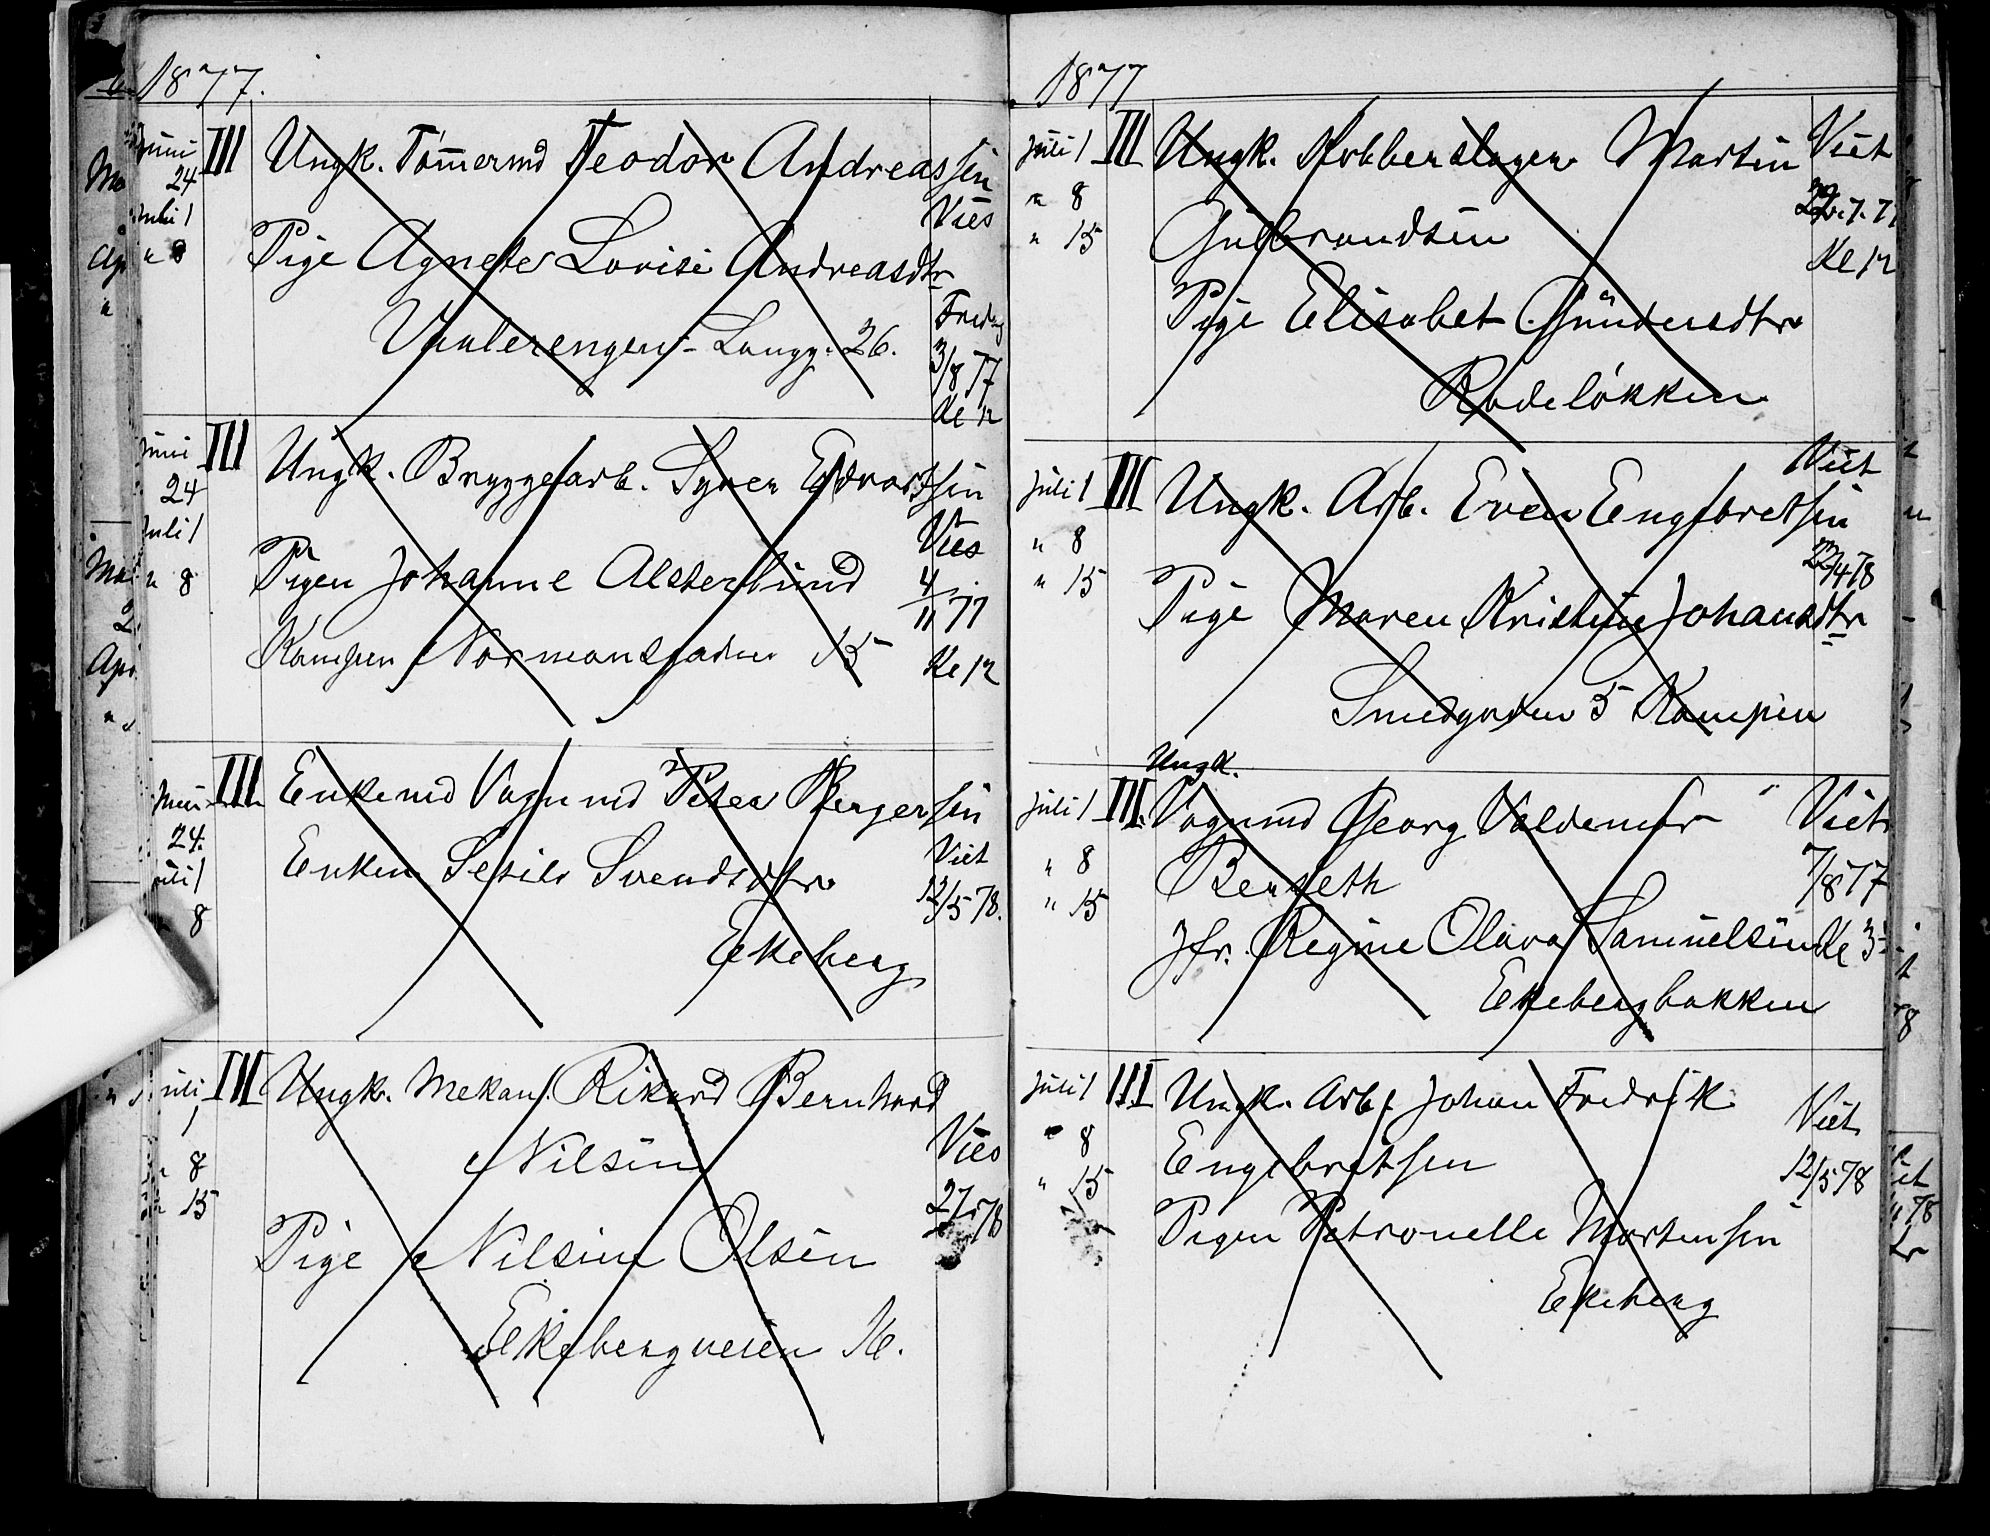 1877.
Juni III Ungk. Tømermd Teodor Andreassen
24
Juli 1 Vies
" 8 Pige Agnete Lovise Andreasdtr
Fredag
Vaalerengen - Langg. 26.
3/8 77
Kl 12
Juni III Ungk. Bryggearb. Syver Edvartsen
24
Juli 1 Vies
" 8 Pigen Johanne Alsterlund
4/11 77
Kampen Normansgaden 15 Kl 12
Juni III Enkemd Vognmd Peter Bergersen
24. Viet
Juli 1 Enken Sesile Svendsdtr 12/5 78.
8
Ekeberg
Juli III Ungk. Mekan. Rikard Bernhard
1
Nilsen Vies
" 8
27/5 78
" 15
Pige Nilsine Olsen
Ekebergveien 16.
1877
Juli 1 III Ungk. Kobberslager Martin Viet
" 8 22.7.77
" 15 Gulbrandsen
Kl 12
Pige Elisabet Gundersdtr
Rodeløkken
Viet
Juli 1 III Ungk. Arb. Even Engebretsen
" 8 22/4 78
" 15 Pige Maren Kristine Johansdtr
Smedgaden 5 Kampen
Ungk.
Juli 1 III. Vognmd Georg Valdemar Viet
" 8 Berseth 7/8 77
" 15
Jfr. Regine Olava Samuelsen Kl 3
Ekebergbakken
Juli 1 III Ungk. Arb. Johan Fredrik
Viet
" 8 Engebretsen 12/5 78
" 15
Pigen Petronelle Mortensen
Ekeberg